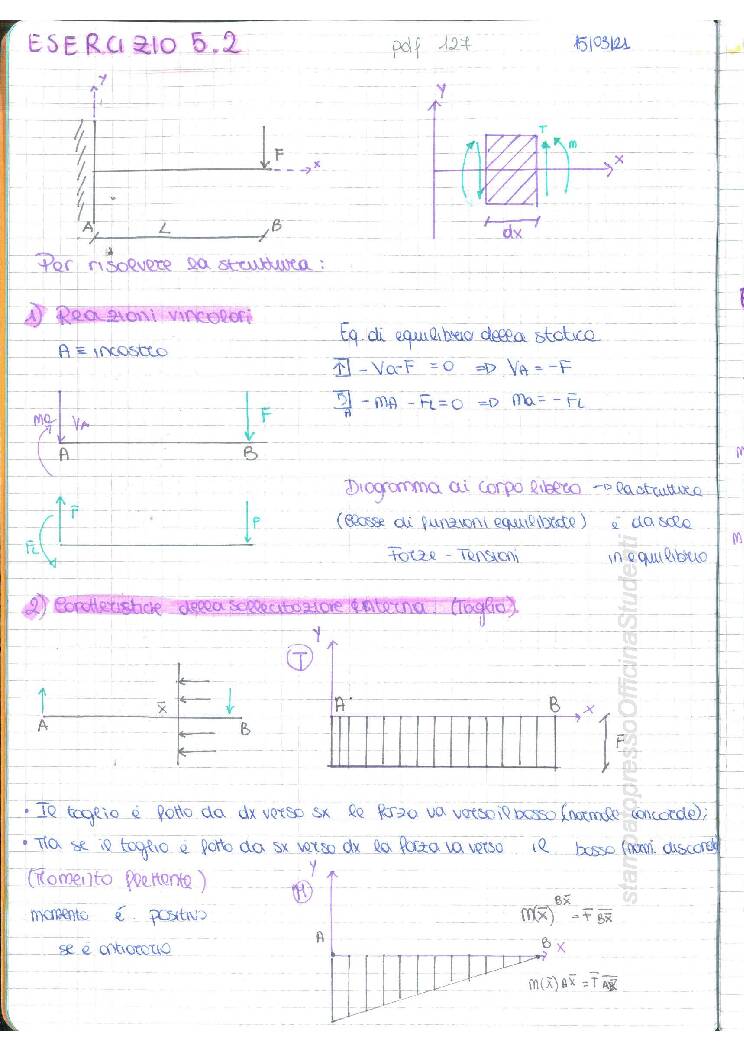 ESERCIZIO 5.2
pdf 127
15/03/21
y
F
x
A
L
B
y
T
m
x
dx
Per risolvere la struttura:
1) Reazioni vincolari
A = incastro
Eq. di equilibrio della statica
- Va-F = 0 => VA = -F
A - MA - FL = 0 => Ma = - FL
Ma VA
F
A
B
F
FL
F
Diagramma di corpo libero → la struttura
(Classe di funzioni equilibrate) è da sola
Forze - Tensioni in equilibrio
2) Caratteristiche della sollecitazione interna. (Taglio)
y
T
A
x̄
B
A
B
x
F
• Il taglio è fatto da dx verso sx la forza va verso il basso (normale concorde);
• Ma se il taglio è fatto da sx verso dx la forza va verso il basso (norm. discorde)
(Momento flettente)
momento è positivo
se è antiorario
y
M
A
B
x
m(x̄) Bx̄ = T Bx̄
m(x̄) Ax̄ = T Ax̄
stampatopressoOfficinaStudenti